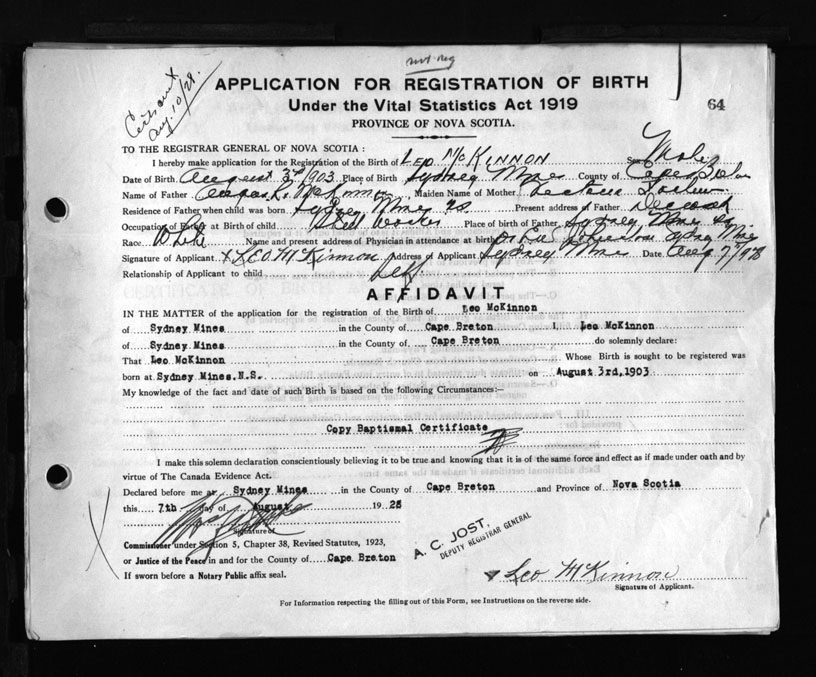 not reg
Cert sent
Aug. 10/28.
APPLICATION FOR REGISTRATION OF BIRTH
Under the Vital Statistics Act 1919
64
PROVINCE OF NOVA SCOTIA.
TO THE REGISTRAR GENERAL OF NOVA SCOTIA:
I hereby make application for the Registration of the Birth of LEO McKINNON Sex Male
Date of Birth August 3rd 1903 Place of Birth Sydney Mines County of Cape Breton
Name of Father McKinnon Maiden Name of Mother
Residence of Father when child was born Sydney Mines N.S. Present address of Father Deceased
Occupation of Father at Birth of child Steel Worker Place of Birth of Father Sydney Mines
Race White Name and present address of Physician in attendance at birth Dr Sydney Mines
Signature of Applicant x LEO McKINNON Address of Applicant Sydney Mines Date Aug 7th/1928
Relationship of Applicant to child Self.
AFFIDAVIT
IN THE MATTER of the application for the registration of the Birth of Leo McKinnon
of Sydney Mines in the County of Cape Breton I, Leo McKinnon
of Sydney Mines in the County of Cape Breton do solemnly declare:
That Leo McKinnon Whose Birth is sought to be registered was
born at Sydney Mines.N.S. on August 3rd,1903
My knowledge of the fact and date of such Birth is based on the following Circumstances:—
Copy Baptismal Certificate
I make this solemn declaration conscientiously believing it to be true and knowing that it is of the same force and effect as if made under oath and by
virtue of The Canada Evidence Act.
Declared before me at Sydney Mines in the County of Cape Breton and Province of Nova Scotia
this 7th day of August 1928
Signature of
Commissioner under Section 5, Chapter 38, Revised Statutes, 1923,
or Justice of the Peace in and for the County of Cape Breton
If sworn before a Notary Public affix seal.
A. C. JOST,
DEPUTY REGISTRAR GENERAL
Leo McKinnon
Signature of Applicant.
For Information respecting the filling out of this Form, see Instructions on the reverse side.